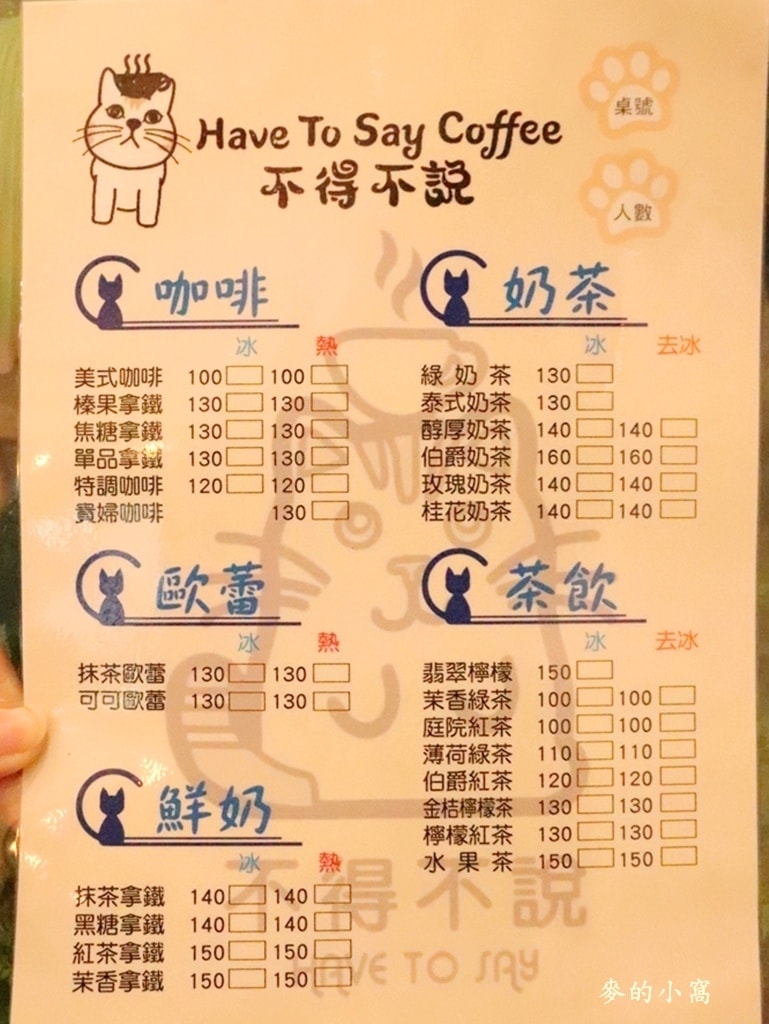 Have To Say Coffee
不得不説
桌號
人數
咖啡
冰 熱
美式咖啡 100 100
榛果拿鐵 130 130
焦糖拿鐵 130 130
單品拿鐵 130 130
特調咖啡 120 120
寶婦咖啡 130
歐蕾
冰 熱
抹茶歐蕾 130 130
可可歐蕾 130 130
鮮奶
冰 熱
抹茶拿鐵 140 140
黑糖拿鐵 140 140
紅茶拿鐵 150 150
茉香拿鐵 150 150
奶茶
冰 去冰
綠奶茶 130
泰式奶茶 130
醇厚奶茶 140 140
伯爵奶茶 160 160
玫瑰奶茶 140 140
桂花奶茶 140 140
茶飲
冰 去冰
翡翠檸檬 150
茉香綠茶 100 100
庭院紅茶 100 100
薄荷綠茶 110 110
伯爵紅茶 120 120
金桔檸檬茶 130 130
檸檬紅茶 130 130
水果茶 150 150
不得不説
HAVE TO SAY
麥的小窩